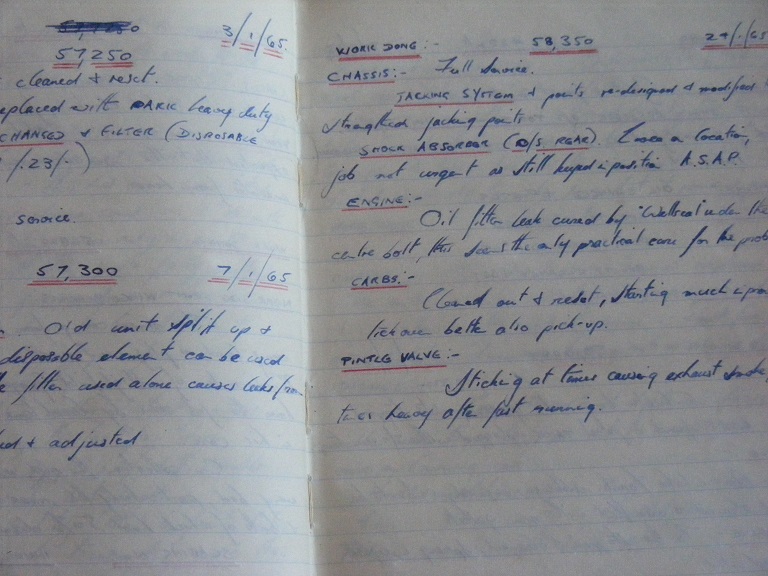 3/1/65
57,250
cleaned & reset.
replaced with DARK heavy duty
CHANGED & FILTER (DISPOSABLE
/.23/-)
service.
57,300 7/1/65
Old unit split up &
disposable element can be used
filter used alone causes leaks from
& adjusted
WORK DONE:- 58,350 24/1/65
CHASSIS:- Full Service.
JACKING SYSTEM & points re-designed & modified
strengthen jacking points
SHOCK ABSORBER (O/S REAR). Loose on location,
job not urgent as still keyed in position A.S.A.P.
ENGINE:-
Oil filter leak cured by "Wellseal" under the
centre bolt, this seems the only practical cure for the prob
CARBS:-
Cleaned out & reset, starting much
tickover better also pick-up.
PINTLE VALVE:-
Sticking at times causing exhaust smoke,
heavy after fast running.